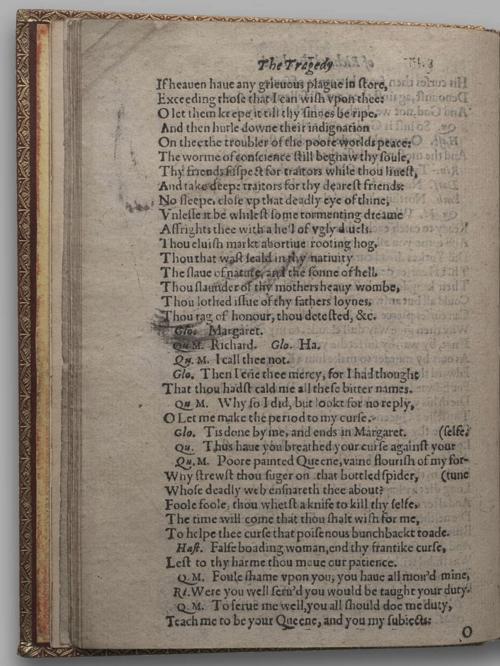 The Tragedy
If heauen haue any grieuous plague in store,
Exceeding those that I can wish vpon thee:
O let them keepe it till thy sinnes be ripe,
And then hurle downe their indignation
On thee the troubler of the poore worlds peace:
The worme of conscience still begnaw thy soule,
Thy friends suspect for traitors while thou liuest,
And take deepe traitors for thy dearest friends:
No sleepe, close vp that deadly eye of thine,
Vnlesse it be whilest some tormenting dreame
Affrights thee with a hell of vgly diuels.
Thou eluish markt abortiue rooting hog,
Thou that wast seald in thy natiuity
The slaue of nature, and the sonne of hell,
Thou slaunder of thy mothers heauy wombe,
Thou lothed issue of thy fathers loynes,
Thou rag of honour, thou detested, &c.
Glo. Margaret.
Qu M. Richard. Glo. Ha.
Qu. M. I call thee not.
Glo. Then I crie thee mercy, for I had thought
That thou hadst cald me all these bitter names.
Qu M. Why so I did, but lookt for no reply,
O Let me make the period to my curse.
Glo. Tis done by me, and ends in Margaret. (selfe.
Qu. Thus haue you breathed your curse against your
Qu. M. Poore painted Queene, vaine flourish of my for-
Why strewst thou suger on that bottled spider, (tune
Whose deadly web ensnareth thee about?
Foole foole, thou whetst a knife to kill thy selfe,
The time will come that thou shalt wish for me,
To helpe thee curse that poisenous bunchbackt toade.
Hast. False boading woman, end thy frantike curse,
Lest to thy harme thou moue our patience.
Q. M. Foule shame vpon you, you haue all mou'd mine,
Ri. Were you well seru'd you would be taught your duty.
Q. M. To serue me well, you all should doe me duty,
Teach me to be your Queene, and you my subiects:
O